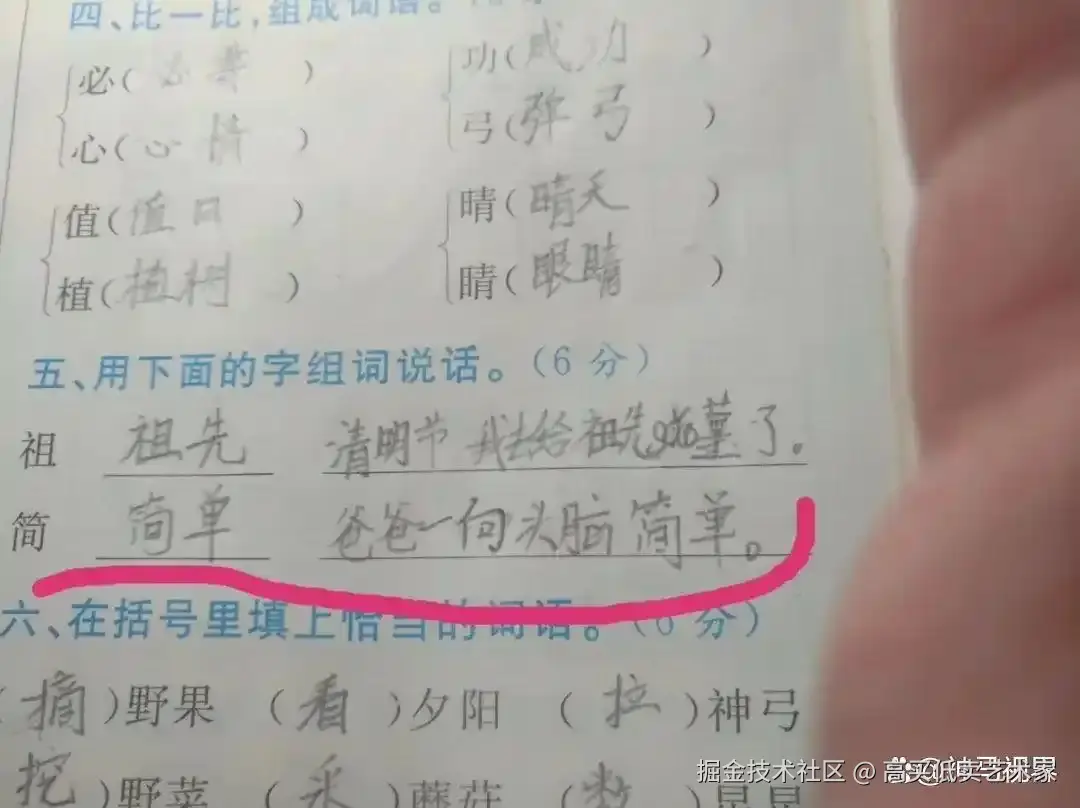 四、比一比,组成词语。
必( ) 功(成功)
心(心情) 弓(弹弓)
值(值日) 晴(晴天)
植(植树) 睛(眼睛)
五、用下面的字组词说话。(6分)
祖 祖先 清明节我去给祖先墓了。
简 简单 爸爸一向头脑简单。
六、在括号里填上恰当的词语。(6分)
(摘)野果 (看)夕阳 (拉)神弓
挖)野菜 (采)蘑菇 (数)星星
掘金技术社区 @